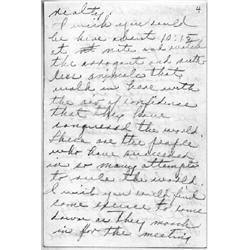 4
reality.
I wish you could
be here about 10:15
at nite and watch
the arrogant and ruth
less animals that
walk in here with
the air of confidence
that they have
conquered the world.
These are the people
who have succeeded
in so many attempts
to rule the world.
I wish you would find
some excuse to come
down as they march
in for the meeting